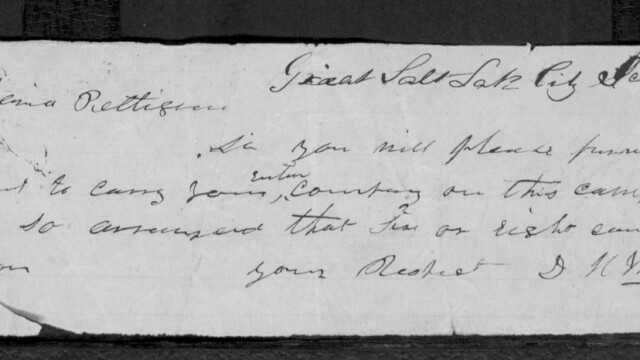 Great Salt Lak City
Pettigrew
Sir you will please
to carry your entire company on this
so arranged that Six or eight can
your Reshect D H